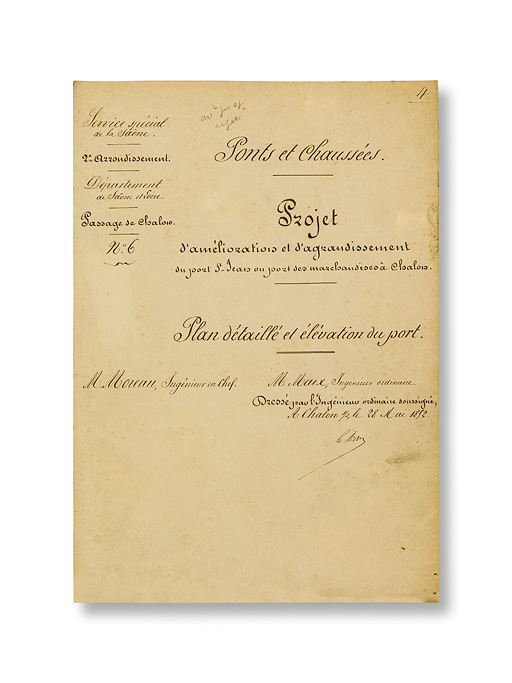 4
Service spécial
de la Saône.
2e Arrondissement.
Département
de Saône et Loire
Passage de Chalon.
N.o 6
Ponts et Chaussées.
Projet
d'amélioration et d'agrandissement
du port St Jean ou port des marchandises à Chalon.
Plan détaillé et élévation du port.
M. Moreau, Ingénieur en Chef.
M. Ingénieur ordinaire
Dressé par l'Ingénieur ordinaire soussigné,
A Chalon s/s le 28 Mai